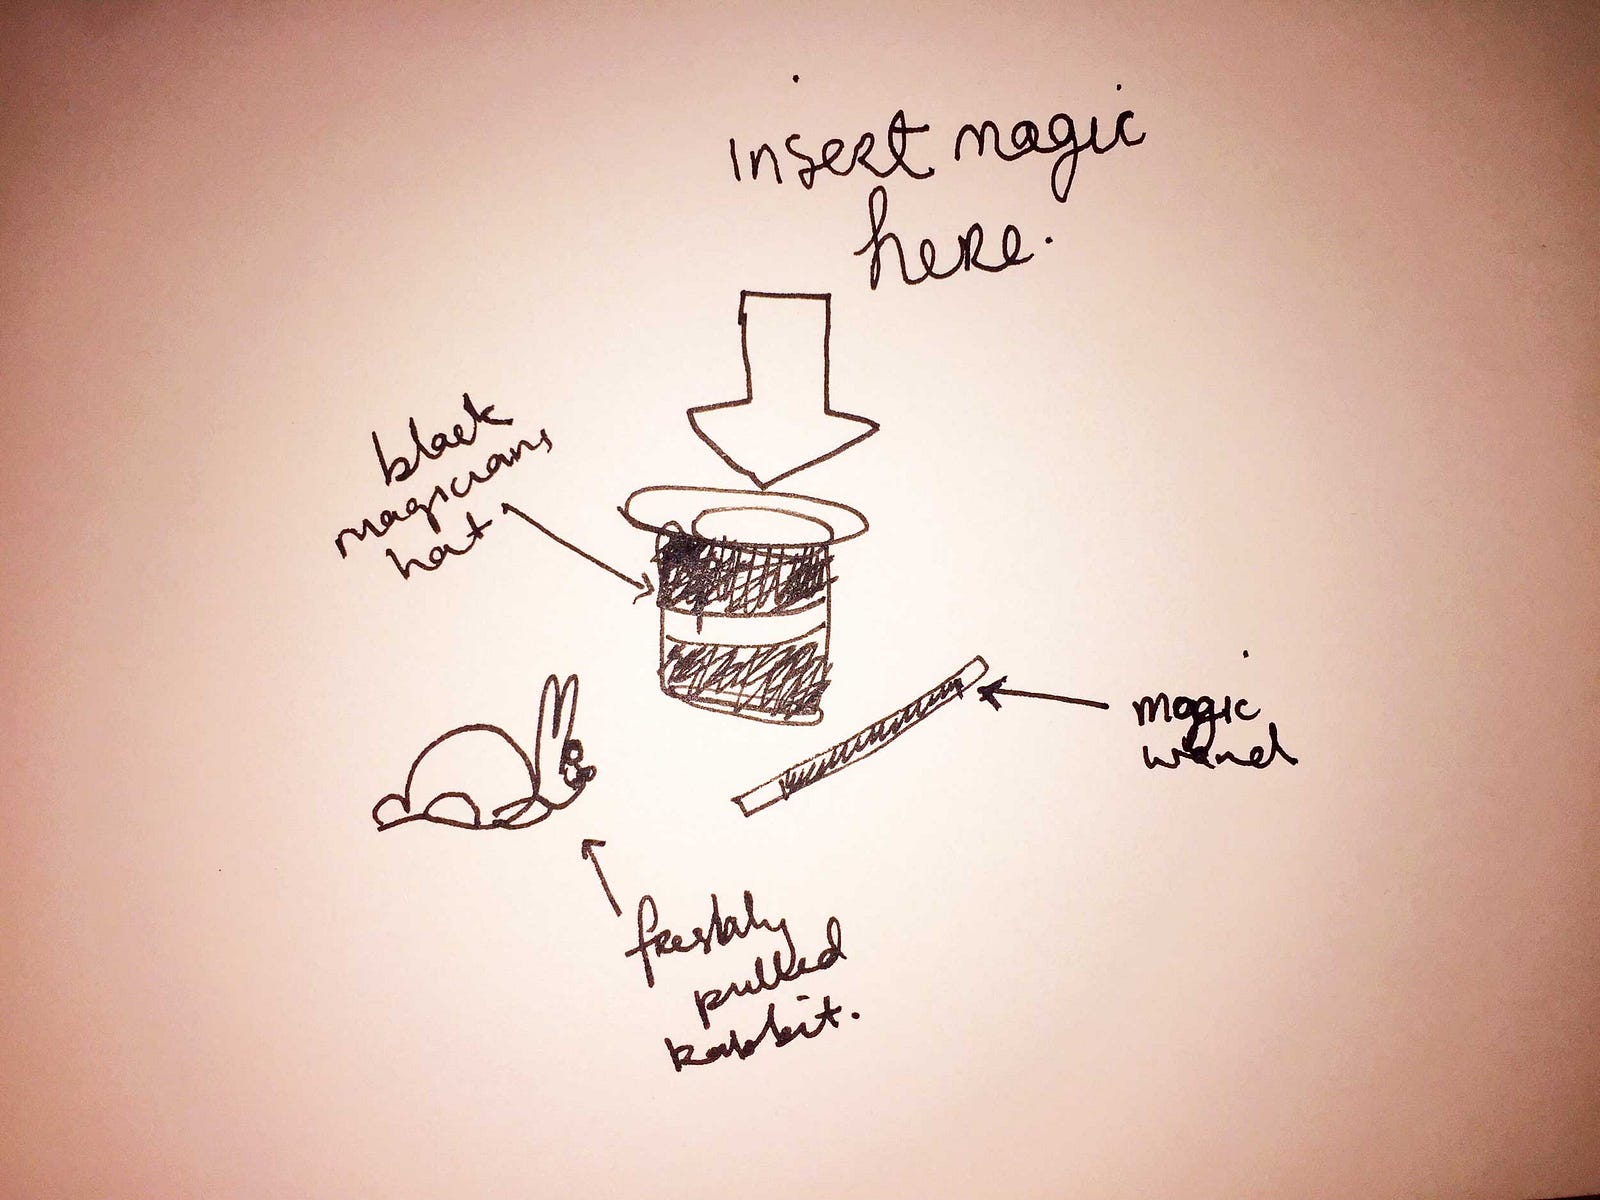 insert magic
here.
black
magicians
hat
magic
wand
freshly
pulled
rabbit.